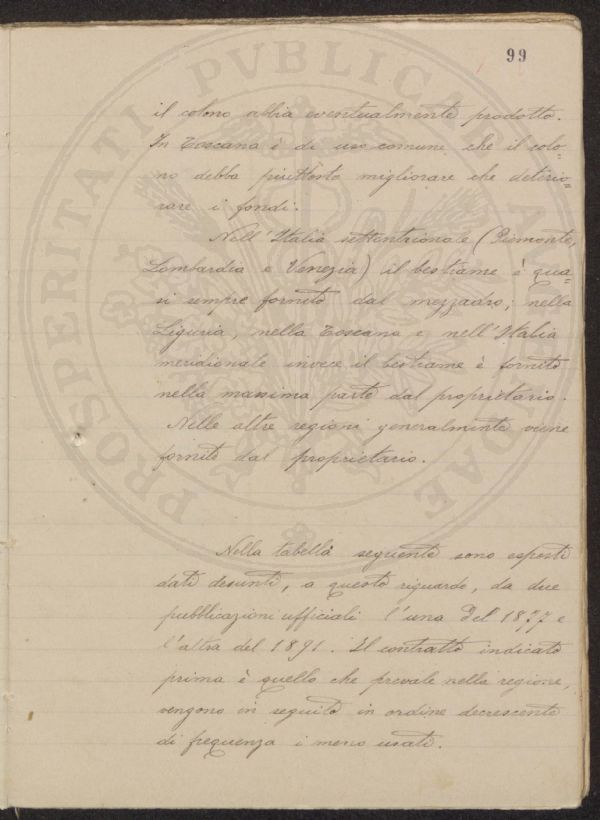 99
il colono abbia eventualmente prodotto.
In Toscana è di uso comune che il colo=
no debba piuttosto migliorare che deterio=
rare i fondi.
Nell'Italia settentrionale (Piemonte,
Lombardia e Venezia) il bestiame è qua=
si sempre fornito dal mezzadro; nella
Liguria, nella Toscana e nell'Italia
meridionale invece il bestiame è fornito
nella massima parte dal proprietario.
Nelle altre regioni generalmente viene
fornito dal proprietario.
Nella tabella seguente sono esposti
dati desunti, a questo riguardo, da due
pubblicazioni ufficiali l'una del 1877 e
l'altra del 1891. Il contratto indicato
prima è quello che prevale nella regione,
vengono in seguito in ordine decrescente
di frequenza i meno usati.
PROSPERITATI PVBLICAE AVGENDAE